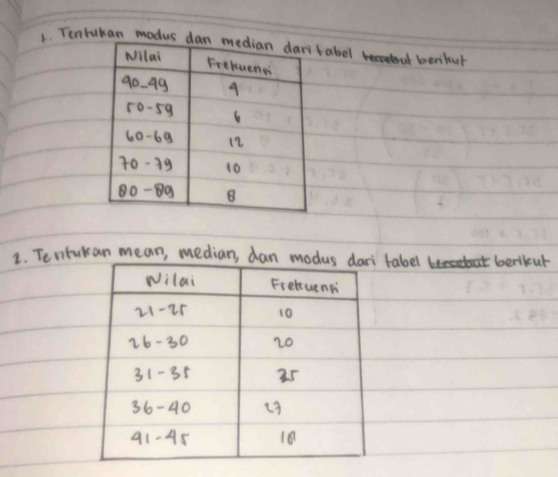 1. Tentukan modus dan median dari tabel tersebut berikut
Nilai Frekuensi
40-49 4
50-59 6
60-69 12
70-79 10
80-89 8
2. Tentukan mean, median, dan modus dari tabel tersebut berikut
Nilai Frekuensi
21-25 10
26-30 20
31-35
36-40
41-45